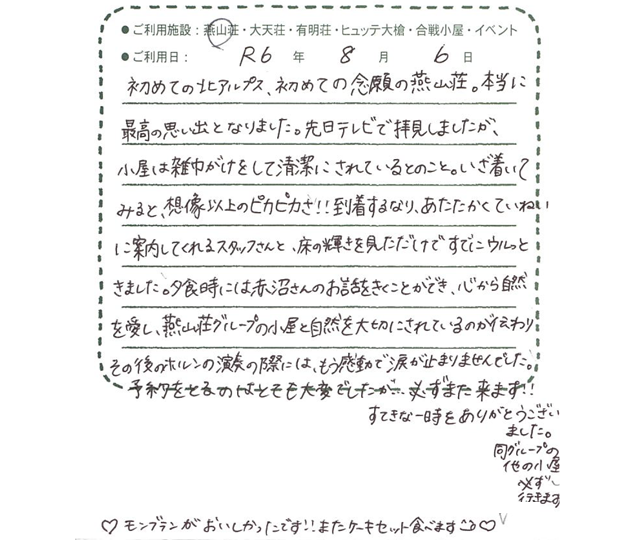 ●ご利用施設：燕山荘・大天荘・有明荘・ヒュッテ大槍・合戦小屋・イベント
●ご利用日：R6年8月6日
初めての北アルプス、初めての念願の燕山荘。本当に
最高の思い出となりました。先日テレビで拝見しましたが、
小屋は雑巾がけをして清潔にされているとのこと。いざ着いて
みると、想像以上のピカピカさ!!到着するなり、あたたかくていねい
に案内してくれるスタッフさんと、床の輝きを見ただけですでにウルっと
きました。夕食時には赤沼さんのお話をきくことができ、心から自然
を愛し、燕山荘グループの小屋と自然を大切にされているのが伝わり
その後のホルンの演奏の際には、もう感動で涙が止まりませんでした。
予約をとるのはとても大変でしたが、必ずまた来ます!!
すてきな一時をありがとうござい
ました。
同グループの
他の小屋
必ず
行きます
♡モンブランがおいしかったです!!またケーキセット食べます♡